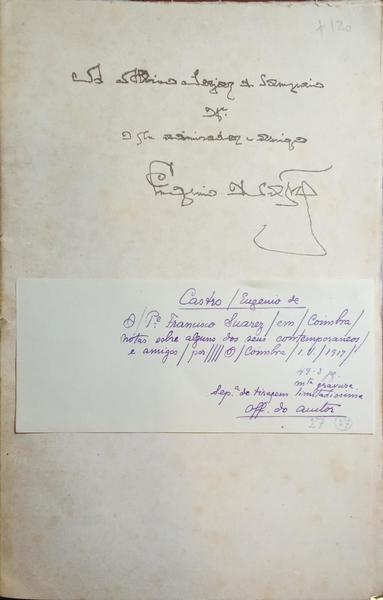 + 120
A Albino Forjaz de Sampaio
of.
o seu admirador e amigo
Eugenio de Castro
Castro / Eugenio de
O / Pe. Francisco Suarez / em / Coimbra /
notas sobre alguns dos seus contemporaneos /
e amigos / por //// O / Coimbra / I.U. / 1917 /
49-3 pg.
mta gravura.
Sep.a de tiragem limitadissima
Off. do auctor
27 27